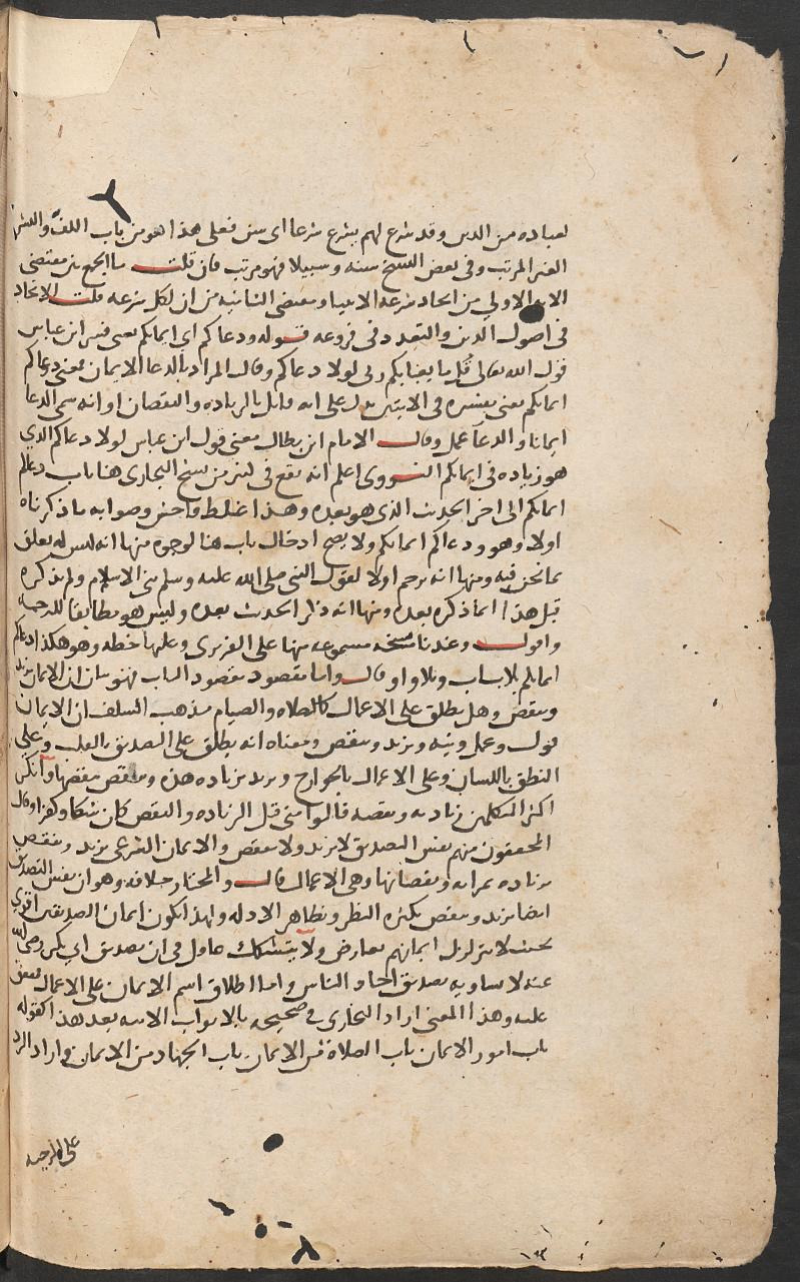 لعباده من الدين وقد شرع لهم يشرع شرعا اى سن فعلى هذا هو من باب اللف والنشر
الغير المرتب وفى بعض النسخ سنة وسبيلا فهو مرتب فان قلت ما الجمع بين مقتضى
الاية الاولى من اتحاد شرعة الانبياء ومقتضى الثانية من ان لكل شرعة قلت الاتحاد
فى اصول الدين والتعدد فى فروعه قوله ودعاكم اى ايمانكم يعنى فسر ابن عباس
قول الله تعالى قل ما يعبا بكم ربى لولا دعاكم وقال المراد بالدعا الايمان فمعنى دعاكم
ايمانكم يعنى تفسيره فى الايتين يدل على انه قابل بالزياده والنقصان او انه سمى الدعا
ايمانا والدعا عمل وقال الامام ابن بطال معنى قول ابن عباس لولا دعاكم الذى
هو زياده فى ايمانكم النووى اعلم انه يقع فى كثير من نسخ البخارى هنا باب دعاكم
ايمانكم الى اخر الحديث الذى هو بعده وهذا غلط فاحش وصوابه ما ذكرناه
اولا وهو ودعاكم ايمانكم ولا يصح ادخال باب هنا لوجوه منها انه ليس له تعلق
بما نحن فيه ومنها انه ترجم اولا لقول النبى صلى الله عليه وسلم بنى الاسلام ولم يذكره
قبل هذا انما ذكره بعده ومنها انه ذكر الحديث بعده وليس هو مطابقا للترجمة
واقول وعندنا نسخه مسموعه منها على الفربرى وعليها خطه وهو هكذا دعاكم
ايمانكم بلا باب وبلا واو قال واما مقصود الباب فهو بيان ان الايمان يزيد
وينقص وهل يطلق على الاعمال كالصلاه والصيام مذهب السلف ان الايمان
قول وعمل ونيه ويزيد وينقص ومعناه انه يطلق على التصديق بالقلب وعلى
النطق باللسان وعلى الاعمال بالجوارح ويزيد بزياده هذه وينقص بنقصها وانكر
اكثر المتكلمين زيادته ونقصه قالوا متى قبل الزياده والنقص كان شكا وكفرا وقال
المحققون منهم نفس التصديق لا يزيد ولا ينقص والايمان الشرعى يزيد وينقص
بزياده ثمراته ونقصانها وهى الاعمال قال والمختار خلافه وهو ان نفس التصديق
ايضا يزيد وينقص بكثره النظر وتظاهر الادله ولهذا يكون ايمان الصديقين اقوى
بحيث لا يتزلزل ايمانهم بعارض ولا يتشكك عاقل فى ان تصديق ابى بكر رضى الله
عنه لا يساويه تصديق احاد الناس واما اطلاق اسم الايمان على الاعمال فمتفق
عليه وهذا المعنى اراد البخارى فى صحيحه بالابواب الاتيه بعد هذا كقوله
باب امور الايمان باب الصلاة من الايمان باب الجهاد من الايمان واراد الرد
على المرجيه